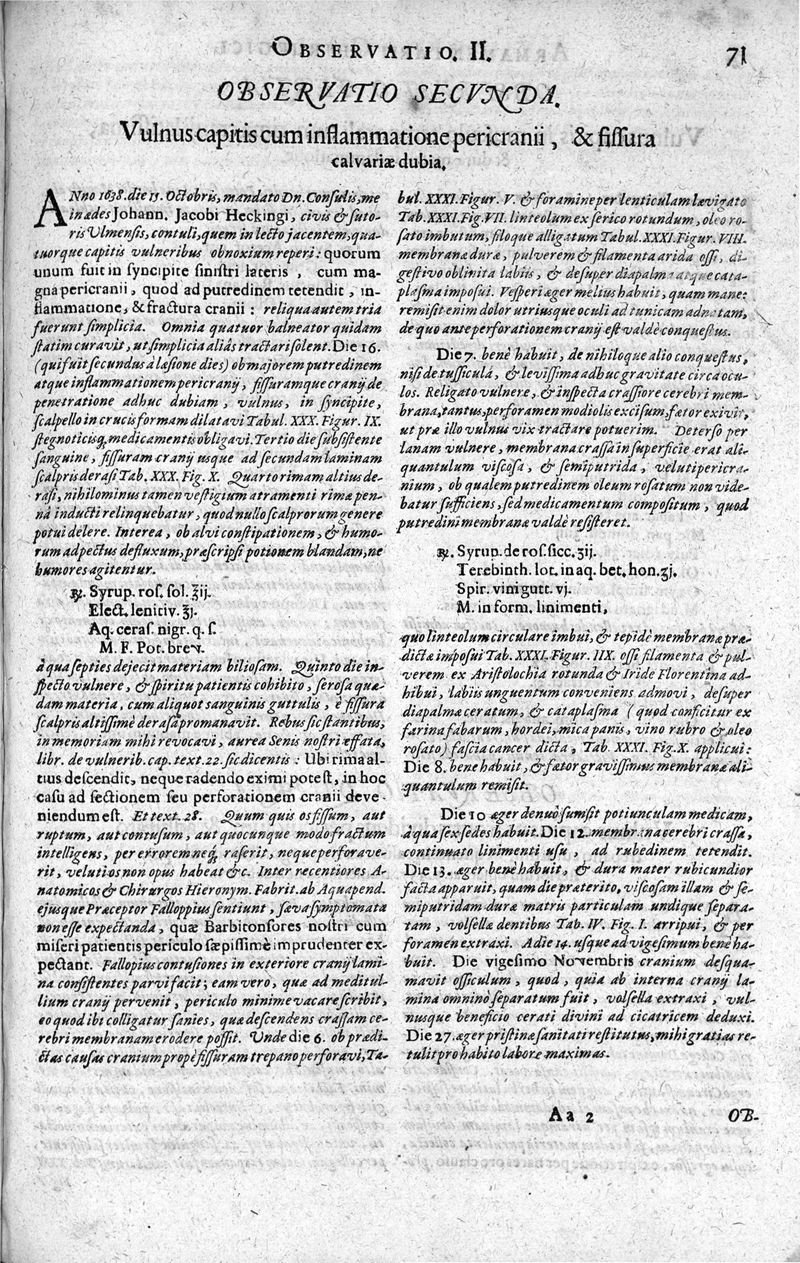 OBSERVATIO. II. 71
OBSERVATIO SECVNDA.
Vulnus capitis cum inflammatione pericranii, & fiſſura
calvariæ dubia.
ANno 1638. die 15. Octobris, mandato Dn. Conſulis, me
in ædes Johann. Jacobi Heckingi, civis & ſuto-
ris Ulmenſis, contuli, quem in lecto jacentem, qua-
tuorque capitis vulneribus obnoxium reperi: quorum
unum fuit in ſyncipite ſiniſtri lateris, cum ma-
gna pericranii, quod ad putredinem tetendit, in-
flammatione, & fractura cranii: reliqua autem tria
fuerunt ſimplicia. Omnia quatuor balneator quidam
ſtatim curavit, ut ſimplicia aliàs tractari ſolent. Die 16.
(qui fuit ſecundus à læſione dies) ob majorem putredinem
atque inflammationem pericranij, fiſſuramque cranij de
penetratione adhuc dubiam, vulnus, in ſyncipite,
ſcalpello in crucis formam dilatavi Tabul. XXX. Figur. IX.
ſtegnoticisq; medicamentis obligavi. Tertio die ſubſiſtente
ſanguine, fiſſuram cranij usque ad ſecundam laminam
ſcalpris deraſi Tab. XXX. Fig. X. Quarto rimam altius de-
raſi, nihilominus tamen veſtigium atramenti rimæ pen-
nâ inducti relinquebatur, quod nullo ſcalprorum genere
potui delere. Interea, ob alvi conſtipationem, & humo-
rum ad pectus defluxum, præſcripſi potionem blandam, ne
humores agitentur.
℞. Syrup. roſ. ſol. ℥ij.
Elect. lenitiv. ℥j.
Aq. ceraſ. nigr. q. ſ.
M. F. Pot. brev.
à qua ſepties dejecit materiam bilioſam. Quinto die in-
ſpecto vulnere, & ſpiritu patientis cohibito, ſeroſa quæ-
dam materia, cum aliquot ſanguinis guttulis, è fiſſura
ſcalpris altiſſimè deraſa promanavit. Rebus ſic ſtantibus,
in memoriam mihi revocavi, aurea Senis noſtri æffata,
libr. de vulnerib. cap. text. 22. ſic dicentis: Ubi rima al-
tius deſcendit, neque radendo eximi poteſt, in hoc
caſu ad ſectionem ſeu perforationem cranii deve-
niendum eſt. Et text. 28. Quum quis os fiſſum, aut
ruptum, aut contuſum, aut quocunque modo fractum
intelligens, per errorem neq; raſerit, neque perforave-
rit, velut ios non opus habeat &c. Inter recentiores A-
natomicos & Chirurgos Hieronym. Fabrit. ab Aquapend.
ejusque Præceptor Falloppius ſentiunt, ſæva ſymptomata
non eſſe expectanda, quæ Barbitonſores noſtri cum
miſeri patientis periculo ſæpiſſimè imprudenter ex-
pectant. Fallopius contuſiones in exteriore cranij lami-
na conſiſtentes parvi facit; eam vero, quæ ad meditul-
lium cranij pervenit, periculo minime vacare ſcribit,
eo quod ibi colligatur ſanies, quæ deſcendens craſſam ce-
rebri membranam erodere poſſit. Unde die 6. ob prædi-
ctas cauſas cranium propè fiſſuram trepano perforavi, Ta-
bul. XXXI. Figur. V. & foramine per lenticulam lævigato
Tab. XXXI. Fig. VII. linteolum ex ſerico rotundum, oleo ro-
ſato imbutum, filoque alligatum Tabul. XXXI. Figur. VIII.
membranæ duræ, pulverem & filamenta arida oſſi, di-
geſtivo oblinita labiis, & deſuper diapalma atque cata-
plaſma impoſui. Veſperi æger melius habuit, quam mane:
remiſit enim dolor utriusque oculi ad tunicam adnatam,
de quo ante perforationem cranij eſt valdè conqueſtus.
Die 7. benè habuit, de nihiloque alio conqueſtus,
niſi de tuſſiculâ, & leviſſima adhuc gravitate circa ocu-
los. Religato vulnere, & inſpecta craſſiore cerebri mem-
brana, tantus, per foramen modiolis exciſum, fætor exivit,
ut præ illo vulnus vix tractare potuerim. Deterſo per
lanam vulnere, membrana craſſa in ſuperficie erat ali-
quantulum viſcoſa, & ſemiputrida, veluti pericra-
nium, ob qualem putredinem oleum roſatum non vide-
batur ſufficiens, ſed medicamentum compoſitum, quod
putredini membranæ valdè reſiſteret.
℞. Syrup. de roſ. ſicc. ʒij.
Terebinth. lot. in aq. bet. hon. ʒj.
Spir. vini gutt. vj.
M. in form. linimenti,
quo linteolum circulare imbui, & tepidè membranæ præ-
dictæ impoſui Tab. XXXI. Figur. IIX. oſſi filamenta & pul-
verem ex Ariſtolochia rotunda & Iride Florentina ad-
hibui, labiis unguentum conveniens admovi, deſuper
diapalmæ ceratum, & cataplaſma (quod conficitur ex
farina fabarum, hordei, mica panis, vino rubro & oleo
roſato) faſcia cancer dicta, Tab. XXXI. Fig. X. applicui:
Die 8. bene habuit, & fætor graviſſimus membranæ ali-
quantulum remiſit.
Die 10 æger denuò ſumſit potiunculam medicam,
à qua ſex ſedes habuit. Die 12. membrana cerebri craſſa,
continuato linimenti uſu, ad rubedinem tetendit.
Die 13. æger benè habuit, & dura mater rubicundior
facta apparuit, quam die præterito, viſcoſam illam & ſe-
miputridam duræ matris particulam undique ſepara-
tam, volſellæ dentibus Tab. IV. Fig. I. arripui, & per
foramen extraxi. A die 14. uſque ad vigeſimum benè ha-
buit. Die vigeſimo Novembris cranium deſqua-
mavit oſſiculum, quod, quia ab interna cranij la-
mina omnino ſeparatum fuit, volſella extraxi, vul-
nusque beneficio cerati divini ad cicatricem deduxi.
Die 27. æger priſtinæ ſanitati reſtitutus, mihi gratias re-
tulit pro habito labore maximas.
Aa 2 OB-